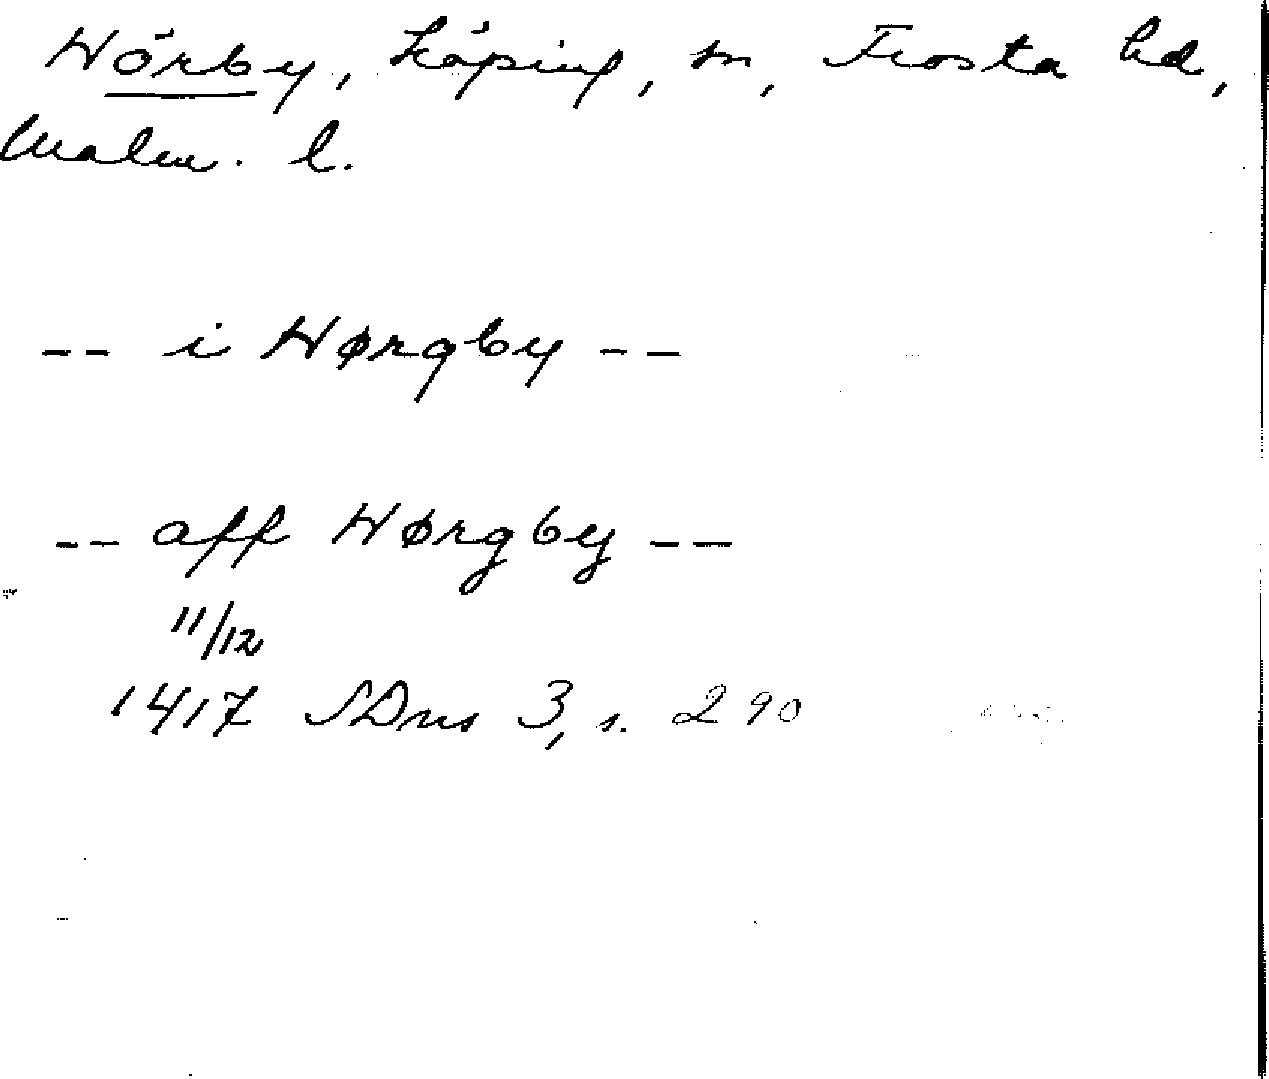 Hörby, köping, sn, Frosta hd,
Malm. l.
-- i Hørgby --
-- aff Hørgby --
11/12
1417 SDns 3, s. 290